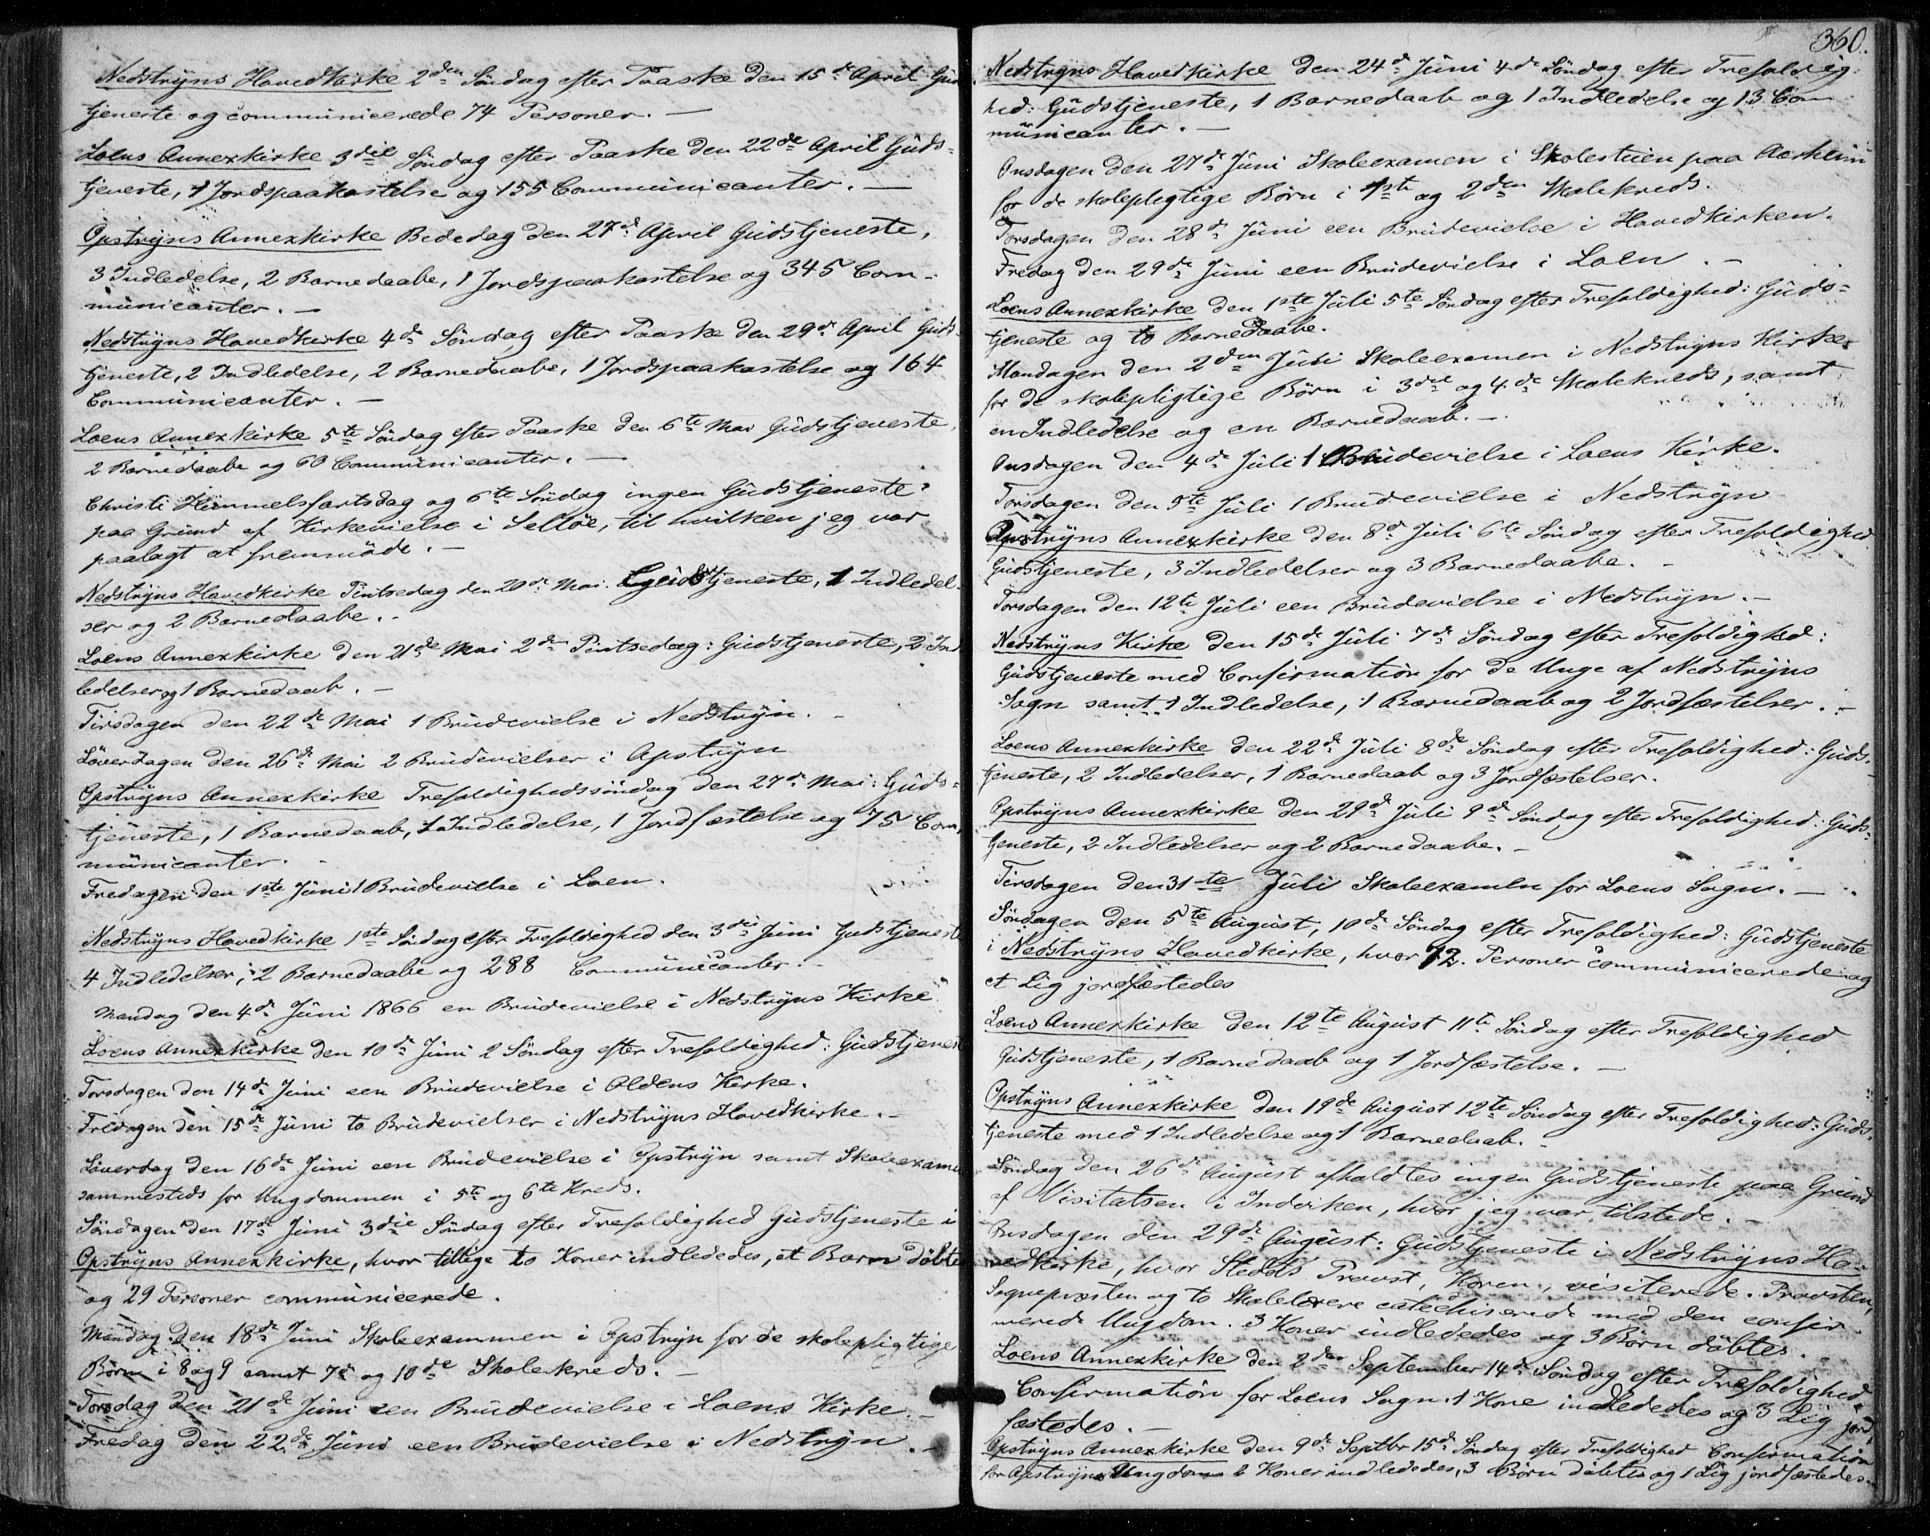 Nedstryns Hovedkirke 2den Søndag efter Paaske den 15de April Guds
tjeneste og communicerede 74 Personer. —
Loens Annexkirke 3die Søndag efter Paaske den 22de April Guds-
tjeneste, 1 Jordspaakastelse og 155 Communicanter. —
Opstryns Annexkirke Bededag den 27de April Gudstjeneste,
3 Indledelse, 2 Barnedaabe, 1 Jordspaakastelse og 345 Com-
municanter. —
Nedstryns Hovedkirke 4de Søndag efter Paaske den 29de April Guds-
tjeneste, 2 Indledelse, 2 Barnedaabe, 1 Jordspaakastelse og 164
Communicanter. —
Loens Annexkirke 5te Søndag efter Paaske den 6te Mai Gudstjeneste,
2 Barnedaabe og 60 Communicanter. —
Christi Himmelsfartsdag og 6te Søndag ingen Gudstjeneste
paa Grund af Kirkevielse i Selløe, til hvilken jeg var
paalagt at fremmøde. —
Nedstryns Hovedkirke Pintsedag den 20de Mai: Gudstjeneste, 1 Indledel-
ser og 2 Barnedaabe. -
Loens Annexkirke den 21de Mai 2de Pintsedag: Gudstjeneste, 2 Ind
ledelser og 1 Barnedaab. —
Tirsdagen den 22de Mai 1 Brudevielse i Nedstryn. -
Løverdagen den 26de Mai 2 Brudevielser i Opstryn
Opstryns Annexkirke Trefoldighedssøndag den 27de Mai: Guds-
tjeneste, 1 Barnedaab, 1 Indledelse, 1 Jordfæstelse og 75 Com
municanter. -
Fredagen den 1ste Juni 1 Brudevielse i Loen.
Nedstryns Hovedkirke 1ste Søndag efter Trefoldighed den 3die Juni Gudstjeneste
4 Indledelser, 2 Barnedaabe og 288 Communicanter. -
Mandag den 4de Juni 1866 en Brudevielse i Nedstryns Kirke
Loens Annexkirke den 10de Juni 2 Søndag efter Trefoldighed: Gudstjeneste
Torsdagen den 14de Juni een Brudevielse i Oldens Kirke.
Fredagen den 15de Juni to Brudevielser i Nedstryns Hovedkirke. -
Løverdag den 16de Juni een Brudevielse i Opstryn samt Skoleexamen
sammesteds for Ungdommen i 5te og 6te Kreds.
Søndagen den 17de Juni 3die Søndag efter Trefoldighed Gudstjeneste i
Opstryns Annexkirke, hvor tillige to Koner indlededes, et Barn døbtes
og 29 Personer communicerede.
Mandag den 18de Juni Skoleexammen i Opstryn for de skolepligtige
Børn i 8 og 9 samt 7de og 10de Skolekreds. —
Torsdag den 21de Juni een Brudevielse i Loens Kirke. -
Fredag den 22de Juni een Brudevielse i Nedstryn. -
360.
Nedstryns Hovedkirke den 24de Juni 4de Søndag efter Trefoldig-
hed: Gudstjeneste, 1 Barnedaab og 1 Indledelse og 13 Com
municanter. —
Onsdagen den 27de Juni Skoleexamen i Skolestuen paa Aarheim
for de skolepligtige Børn i 1ste og 2den Skolekreds.
Torsdagen den 28de Juni een Brudevielse i Hovedkirken.
Fredag den 29de Juni een Brudevielse i Loen. -
Loens Annexkirke den 1ste Juli 5te Søndag efter Trefoldighed: Guds-
tjeneste og to Barnedaabe.
Mandagen den 2den Juli Skoleexamen i Nedstryns Kirke
for de skolepligtige Børn i 3die og 4de Skolekreds, samt
en Indledelse og en Barnedaab. -
Onsdagen den 4de Juli 1 Brudevielse i Loens Kirke.
Torsdagen den 5te Juli 1 Brudevielse i Nedstryn
Opstryns Annexkirke den 8de Juli 6te Søndag efter Trefoldighed
Gudstjeneste, 3 Indledelser og 3 Barnedaabe. -
Torsdagen den 12te Juli een Brudevielse i Nedstryn. -
Nedstryns Kirke den 15de Juli 7de Søndag efter Trefoldighed:
Gudstjeneste med Confirmation for de Unge af Nedstryns
Sogn samt 1 Indledelse, 1 Barnedaab og 2 Jordfæstelser. -
Loens Annexkirke den 22de Juli 8de Søndag efter Trefoldighed: Guds-
tjeneste, 2 Indledelser, 1 Barnedaab og 3 Jordfæstelser.
Opstryns Annexkirke den 29de Juli 9de Søndag efter Trefoldighed: Guds-
tjeneste, 2 Indledelser og 2 Barnedaabe. -
Tirsdagen den 31te Juli Skoleexamen for Loens Sogn. -
Søndagen den 5te August, 10de Søndag efter Trefoldighed: Gudstjeneste
i Nedstryns Hovedkirke, hvor 72. Personer communicerede og
et Lig jordfæstedes
Loens Annexkirke den 12te August 11te Søndag efter Trefoldighed
Gudstjeneste, 1 Barnedaab og 1 Jordfæstelse. —
Opstryns Annexkirke den 19de August 12te Søndag efter Trefoldighed: Guds-
tjeneste med 1 Indledelse og 1 Barnedaab. -
Søndag den 26de August afholdtes ingen Gudstjeneste paa Grund
af Visitatsen i Indviken, hvor jeg var tilstede. -
Onsdagen den 29de August: Gudstjeneste i Nedstryns Ho-
vedkirke, hvor Stedets Provst, Koren, visiterede. Provsten,
Sognepræsten og to Skolelærere catechiserede med den confir-
merede Ungdom. 3 Koner indlededes og 3 Børn døbtes. -
Loens Annexkirke den 2den September 14de Søndag efter Trefoldighed
Confirmation for Loens Sogn. 1 Kone indlededes og 3 Lig jord
fæstedes. -
Opstryns Annexkirke den 9de Septbr 15de Søndag efter Trefoldighed Confirmation
for Opstryns Ungdom 2 Koner indlededes, 3 Børn døbtes og 1 Lig jordfæstedes. -